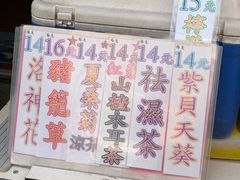 14元
洛神花
16元
豬籠草
14元
夏桑菊
涼
14元
木耳茶
14元
祛濕茶
14元
紫貝天葵
15元
檸